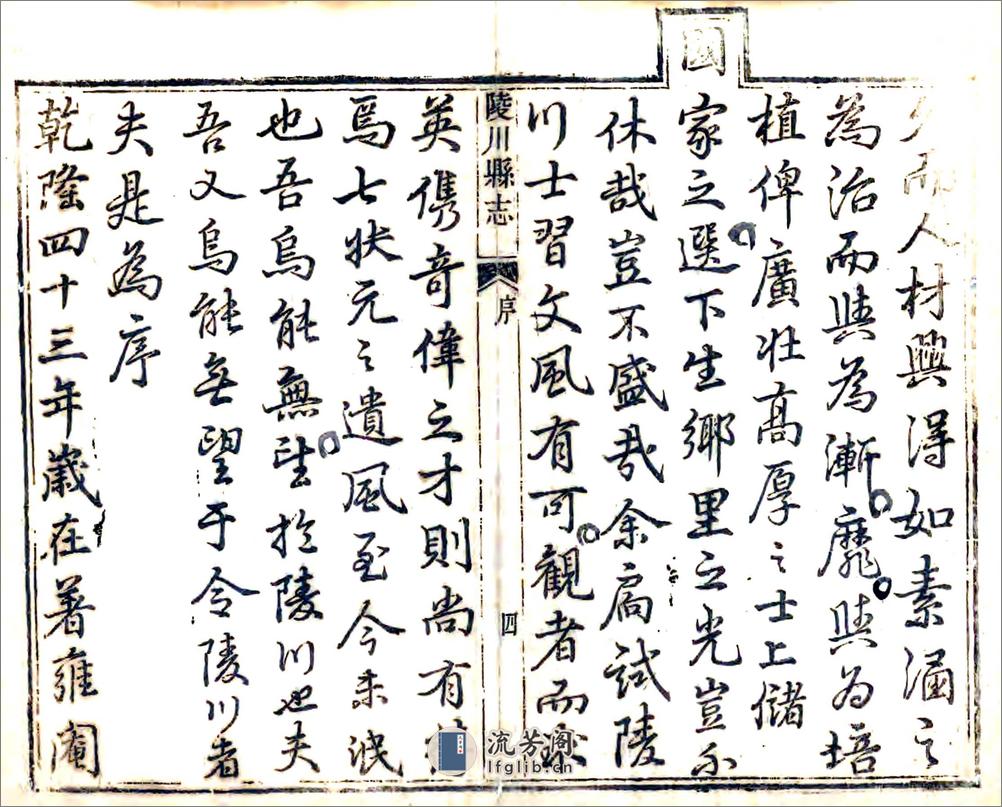 夕而人材興得如素涵之
為治而與為漸靡與為培
植俾廣壯高厚之士上儲
國
家之選下生鄉里之光豈不
休哉豈不盛哉余扃試陵
川士習文風有可觀者而
陵川縣志
序
四
英儁奇偉之才則尚有
焉七狀元之遺風至今未泯
也吾烏能無望於陵川也夫
吾又烏能無望于令陵川者
夫是為序
乾隆四十三年歲在著雍閹
流芳阁
lfglib.cn